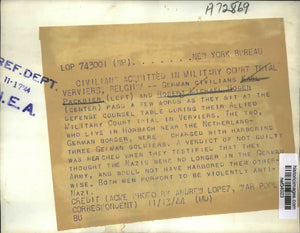 A72869
REF. DEPT.
11-17-44
N.E.A.
LOP 743001 (MP) NEW YORK BUREAU
CIVILIANS ACQUITTED IN MILITARY COURT TRIAL
VERVIERS, BELGIUM -- GERMAN CIVILIANS
(LEFT) AND
(CENTER) PASS A FEW WORDS AS THEY SIT AT THE
DEFENSE COUNSEL TABLE DURING THEIR ALLIED
MILITARY COURT TRIAL IN VERVIERS. THE TWO,
WHO LIVE IN NEAR THE NETHERLANDS-
GERMAN BORDER, WERE CHARGED WITH HARBORING
THREE GERMAN SOLDIERS. A VERDICT OF NOT GUILTY
WAS REACHED WHEN THEY TESTIFIED THAT THEY
THOUGHT THE NAZIS WERE NO LONGER IN THE GERMAN
ARMY, AND WOULD NOT HAVE HARBORED THEM OTHER-
WISE. BOTH MEN PURPORT TO BE VIOLENTLY ANTI-
NAZI.
CREDIT (ACME PHOTO BY ANDREW LOPEZ, WAR POOL
CORRESPONDENT) 11/13/44 (MD)
BU